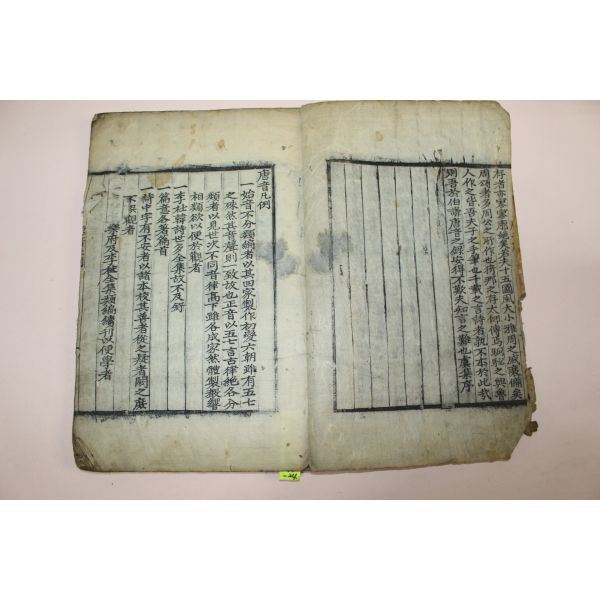 存者亦寥寥廖絶矣者夫十五國風大小雅周之盛衰備矣
周頌者多周公之所作也將那之存太師傳焉駉駜之興魯
人作之皆吾夫子之手筆也千載之言詩者孰不本於此哉
則吾於伯謙唐音之録安得不歎夫知言之難也虞集序
唐音凡例
一始音不分類編者以其四家製作初變六朝雖有五七
之殊然其音聲則一致故也正音以五七言古律絶各分
類者以見世次不同音律高下雖各成家然體製聲響
相類欲以便於觀者
一李杜韓詩世多全集故不及録
一篇章各著篇首
一詩中字有不安者以諸本校其善者從之疑者闕之庶
不誤觀者
樂府及李杜全集類編續刊以便學者
-24